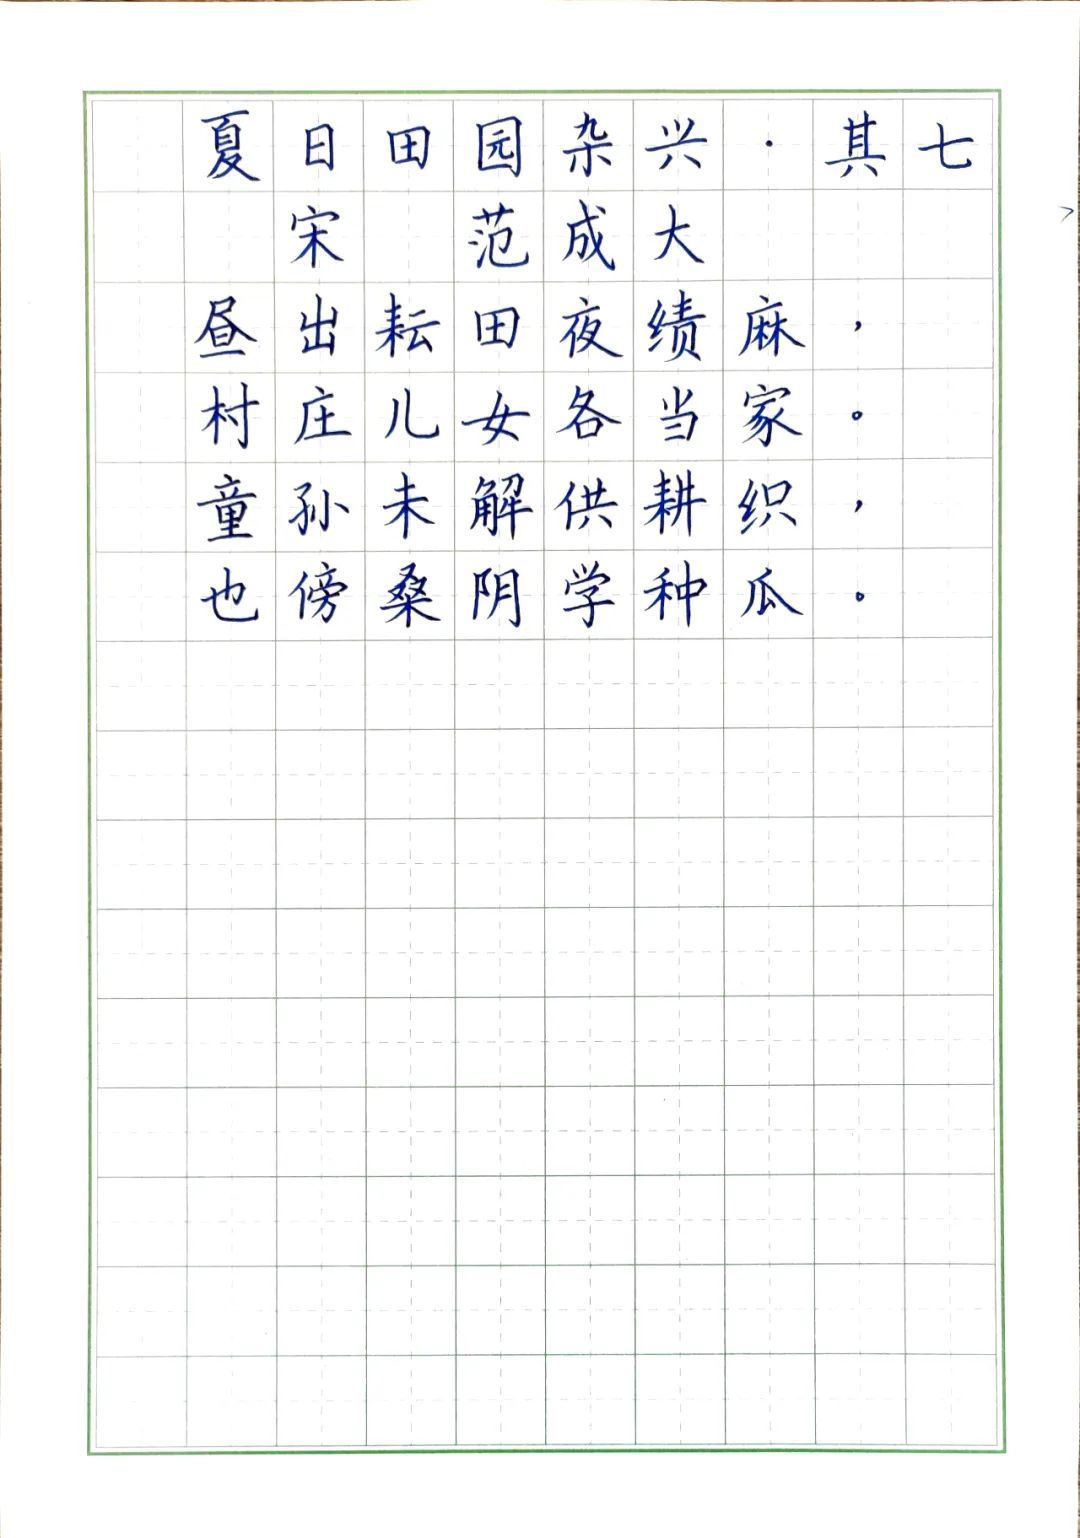 夏日田园杂兴·其七
宋 范成大
昼出耘田夜绩麻，
村庄儿女各当家。
童孙未解供耕织，
也傍桑阴学种瓜。